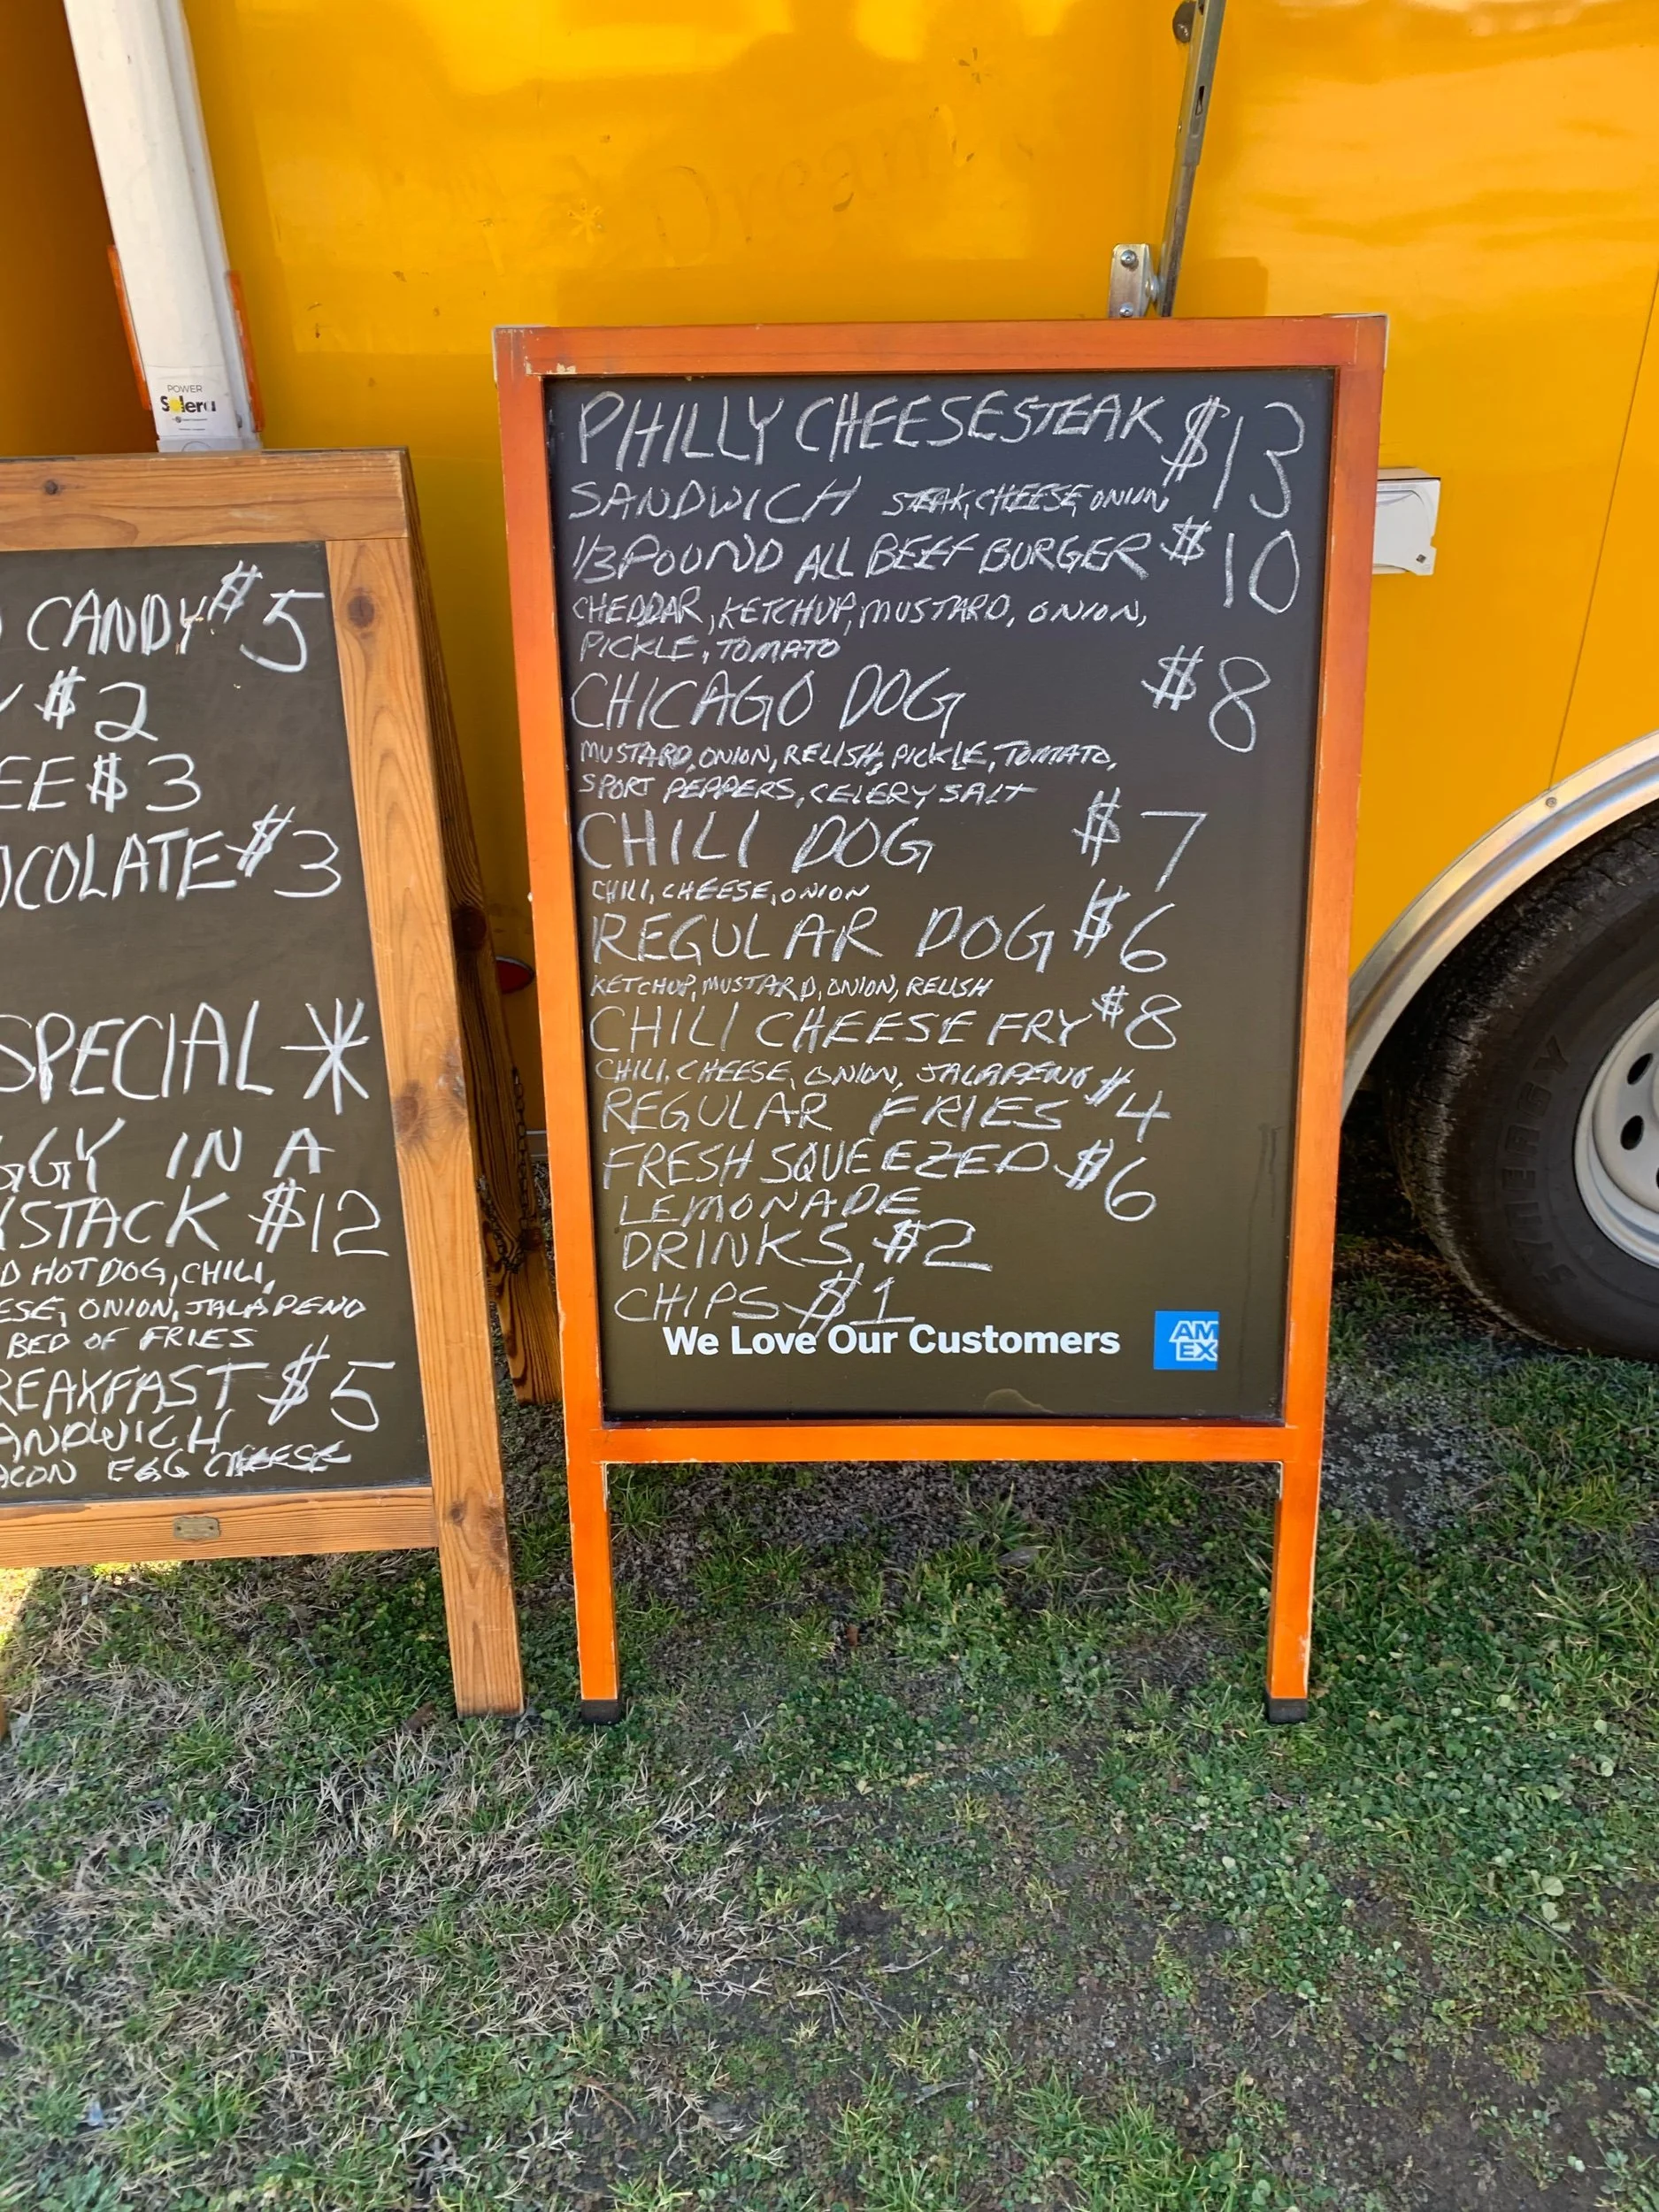 POWER
Solera
CANDY $5
$2
EE $3
OCOLATE $3
SPECIAL *
GGY IN A
YSTACK $12
D HOT DOG, CHILI,
ESE, ONION, JALAPENO
BED OF FRIES
REAKFAST $5
ANDWICH
ACON EGG CHEESE
PHILLY CHEESESTEAK $13
SANDWICH STEAK, CHEESE, ONION
1/3 POUND ALL BEEF BURGER $10
CHEDDAR, KETCHUP, MUSTARD, ONION,
PICKLE, TOMATO
CHICAGO DOG $8
MUSTARD, ONION, RELISH, PICKLE, TOMATO,
SPORT PEPPERS, CELERY SALT
CHILI DOG $7
CHILI, CHEESE, ONION
REGULAR DOG $6
KETCHUP, MUSTARD, ONION, RELISH
CHILI CHEESE FRY $8
CHILI, CHEESE, ONION, JALAPENO
REGULAR FRIES $4
FRESH SQUEEZED $6
LEMONADE
DRINKS $2
CHIPS $1
We Love Our Customers
AM
EX
SYNERGY